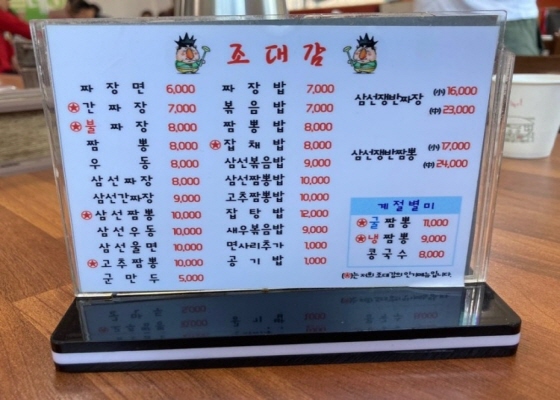 조대감
짜장면 6,000
㉦간짜장 7,000
㉦불짜장 8,000
짬뽕 8,000
우동 8,000
삼선짜장 8,000
삼선간짜장 9,000
㉦삼선짬뽕 10,000
삼선우동 10,000
삼선울면 10,000
㉦고추짬뽕 10,000
군만두 5,000
짜장밥 7,000
볶음밥 7,000
짬뽕밥 8,000
㉦잡채밥 8,000
삼선볶음밥 9,000
삼선짬뽕밥 10,000
고추짬뽕밥 10,000
잡탕밥 12,000
새우볶음밥 9,000
면사리추가 1,000
공기밥 1,000
삼선쟁반짜장 (小) 16,000
(中) 23,000
삼선쟁반짬뽕 (小) 17,000
(中) 24,000
계절별미
㉦굴짬뽕 11,000
㉦냉짬뽕 9,000
콩국수 8,000
(㉦)는 저희 조대감의 인기메뉴입니다